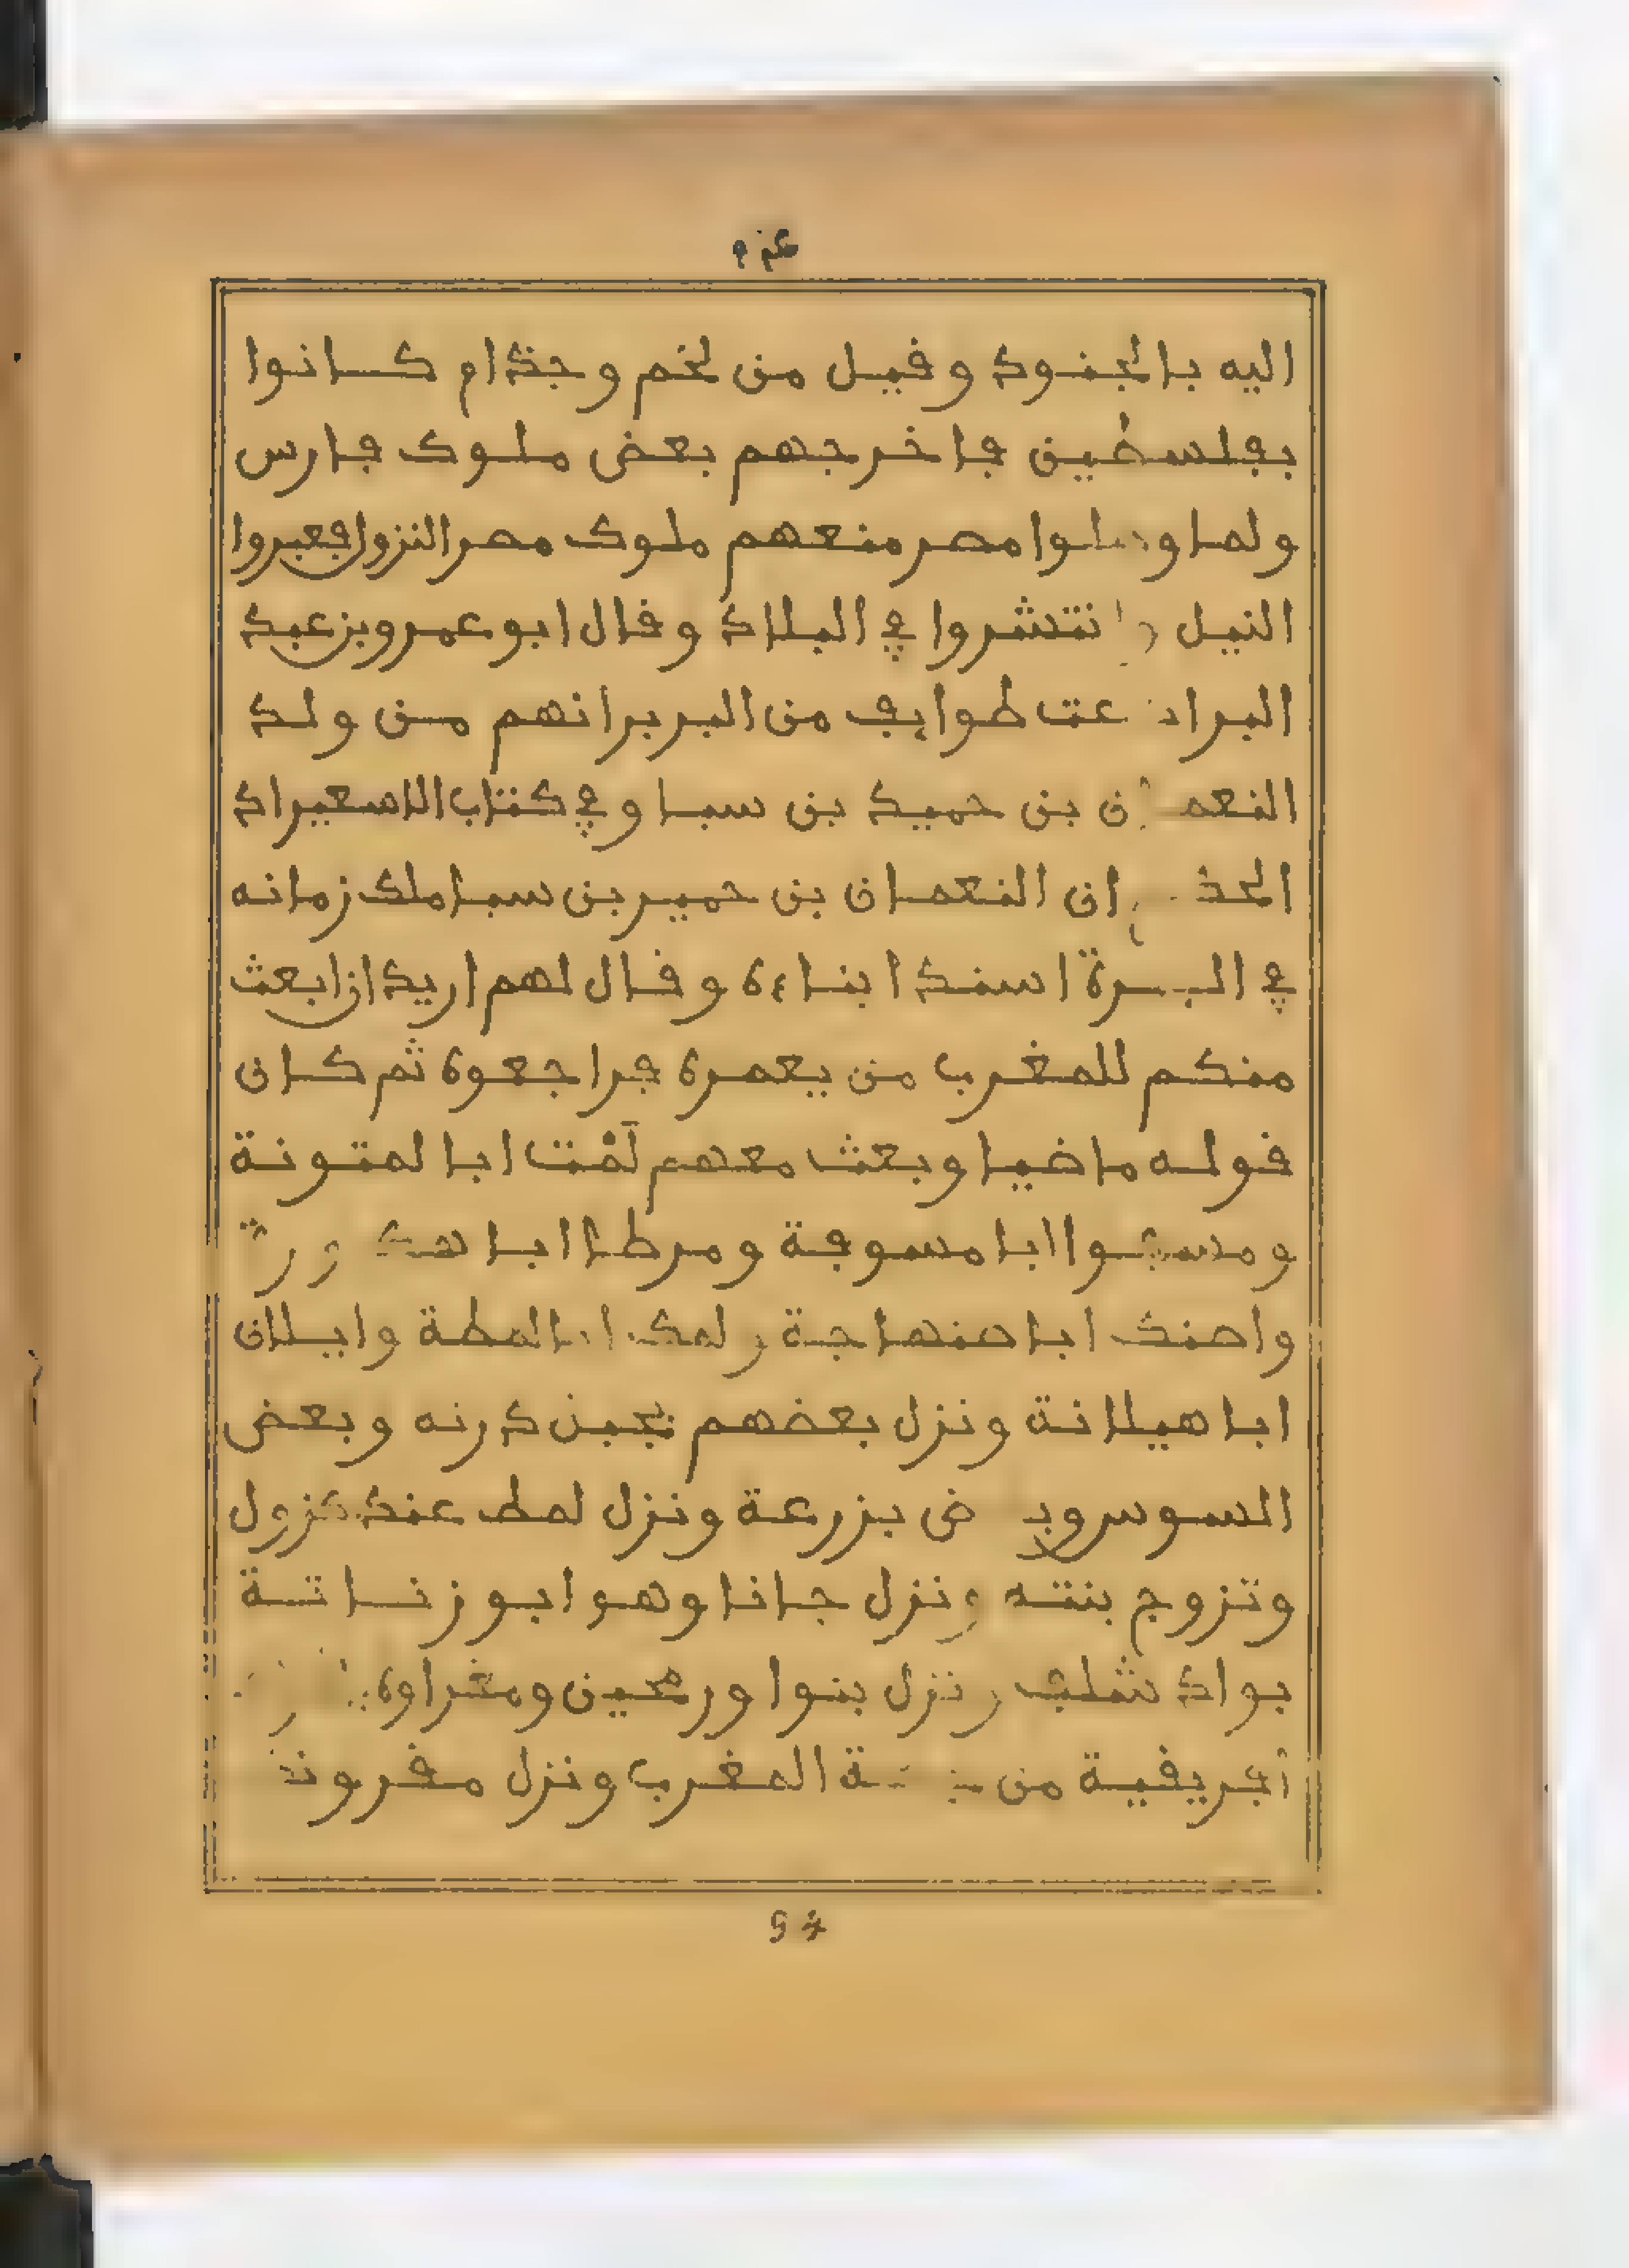 اليه بالجنود وقيل من لخم وجذام كانوا
بفلسطين فاخرجهم بعض ملوك فارس
ولما وصلوا مصر منعهم ملوك مصر النزول فعبروا
النيل وانتشروا في البلاد وقال ابو عمرو بن عبد
البر ادعت طوايف من البربر انهم من ولد
النعمان بن حميد بن سبا وفي كتاب الاسعيراد
ان النعمان بن حمير بن سبا ملك زمانه
في اسند ابناءه وقال لهم اريد ان ابعث
منكم للمغرب من يعمره فراجعوه ثم كان
قوله ماضيا وبعث معهم لمت ابا لمتونة
ومسفوا ابا مسوفة ومرطا ابا
واصنك ابا صنهاجة ولمط ابا لمطة وايلان
ابا هيلانة ونزل بعضهم بجبن درنه وبعض
السوس بزرعة ونزل لمط عند كزول
وتزوج بنته ونزل جانا وهو ابو زناتة
بواد شلف ونزل بنوا ورجين ومغراوه
افريقية من المغرب ونزل مقرونة